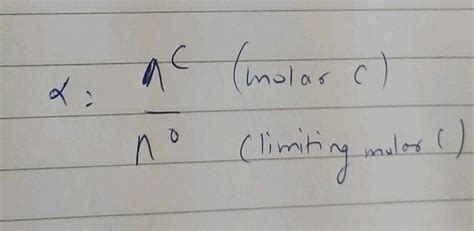 α : Λ^c (molar c)
Λ^o (limiting molar c)